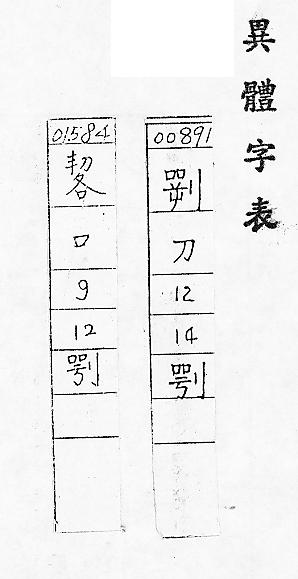 異體字表
00891
刀
12
14
㓵
01584
口
9
12
㓵